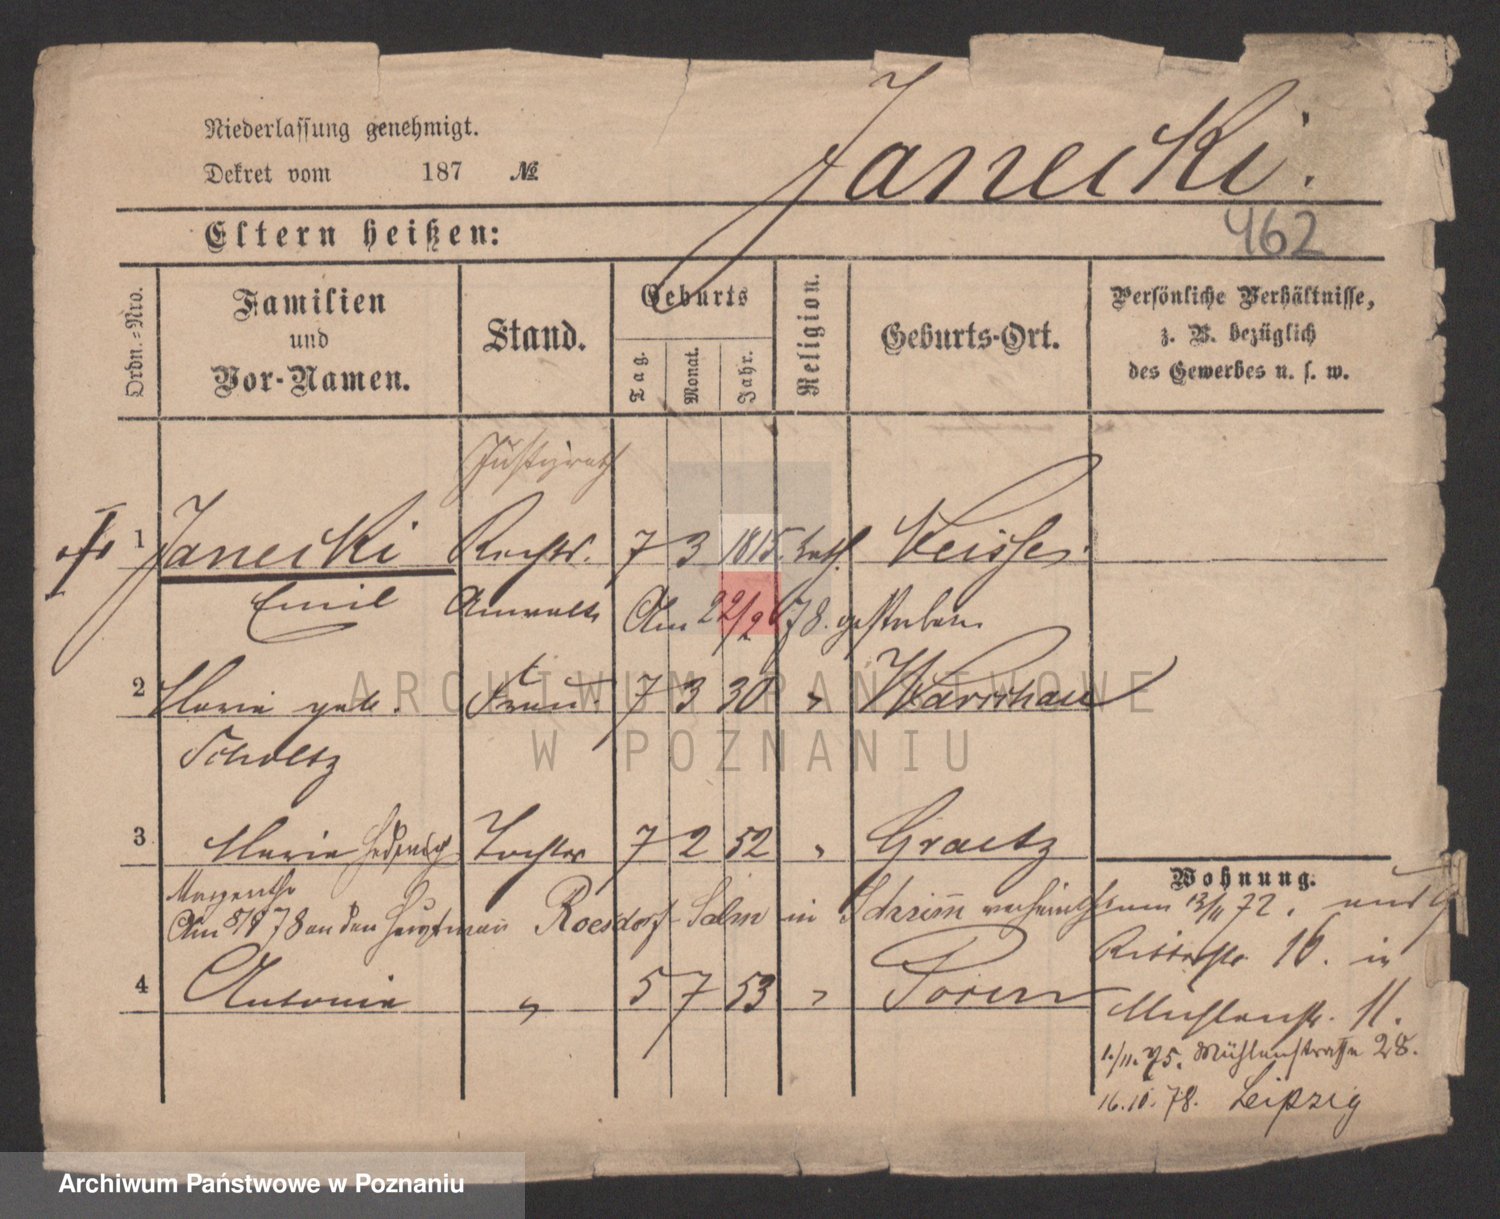 Niederlassung genehmigt.
Dekret vom 187 №
Janecki.
Eltern heißen:
462
Ordn.-Nro.
Familien
und
Vor-Namen.
Stand.
Geburts
Tag.
Monat.
Jahr.
Religion.
Geburts-Ort.
Persönliche Verhältnisse,
z. B. bezüglich
des Gewerbes u. s. w.
Justizrath
1 Janecki Rechts. 7 3 1815. kath.
Emil Anwalt Am 22/2 78. gestorben
2 Marie geb. Frau. 7 3 30 " Warschau
Scholtz
3 Marie Hedwig Tochter 7 2 52 " Graetz
Wohnung.
Am 8/9 78 an den Hauptmann Roesdorf-Salm in Schrimm verheirathet 13/11 72.
Ritterstr. 10. in
4 Antonie " 5 7 53 " Posen
Mühlenstr. 11.
1./11. 75. Mühlenstraße 28.
16.10.78. Leipzig
ARCHIWUM PAŃSTWOWE
W POZNANIU
Archiwum Państwowe w Poznaniu